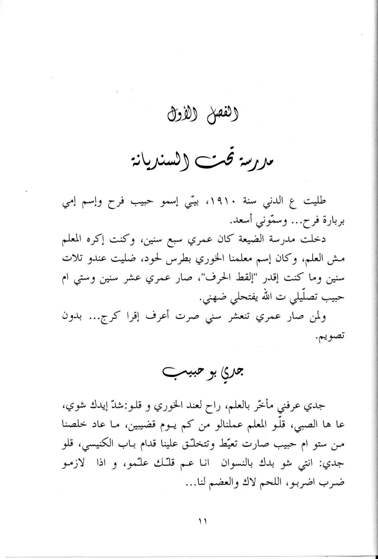 الفصل الأول
مدرسة تحت السنديانة
طليت ع الدني سنة ١٩١٠، بيّي إسمو حبيب فرح وإسم إمي
بربارة فرح... وسمّوني أسعد.
دخلت مدرسة الضيعة كان عمري سبع سنين، وكنت إكره المعلم
مش العلم، وكان إسم معلمنا الخوري بطرس لحود، ضليت عندو تلات
سنين وما كنت إقدر "إلقط الحرف"، صار عمري عشر سنين وستي ام
حبيب تصلّيلي ت الله يفتحلي ضهني.
ولمن صار عمري تنعشر سني صرت أعرف إقرا كرج... بدون
تصويم.
جدي بو حبيب
جدي عرفني مأخّر بالعلم، راح لعند الخوري و قلو:شدّ إيدك شوي،
عا ها الصبي، قلّو المعلم عملنالو من كم يوم قضيبين، ما عاد خلصنا
من ستو ام حبيب صارت تعيّط وتتخلّق علينا قدام باب الكنيسي، قلو
جدي: انتي شو بدك بالنسوان انا عم قلّك علّمو، و اذا لازمو
ضرب اضربو، اللحم لاك والعضم لنا...
١١